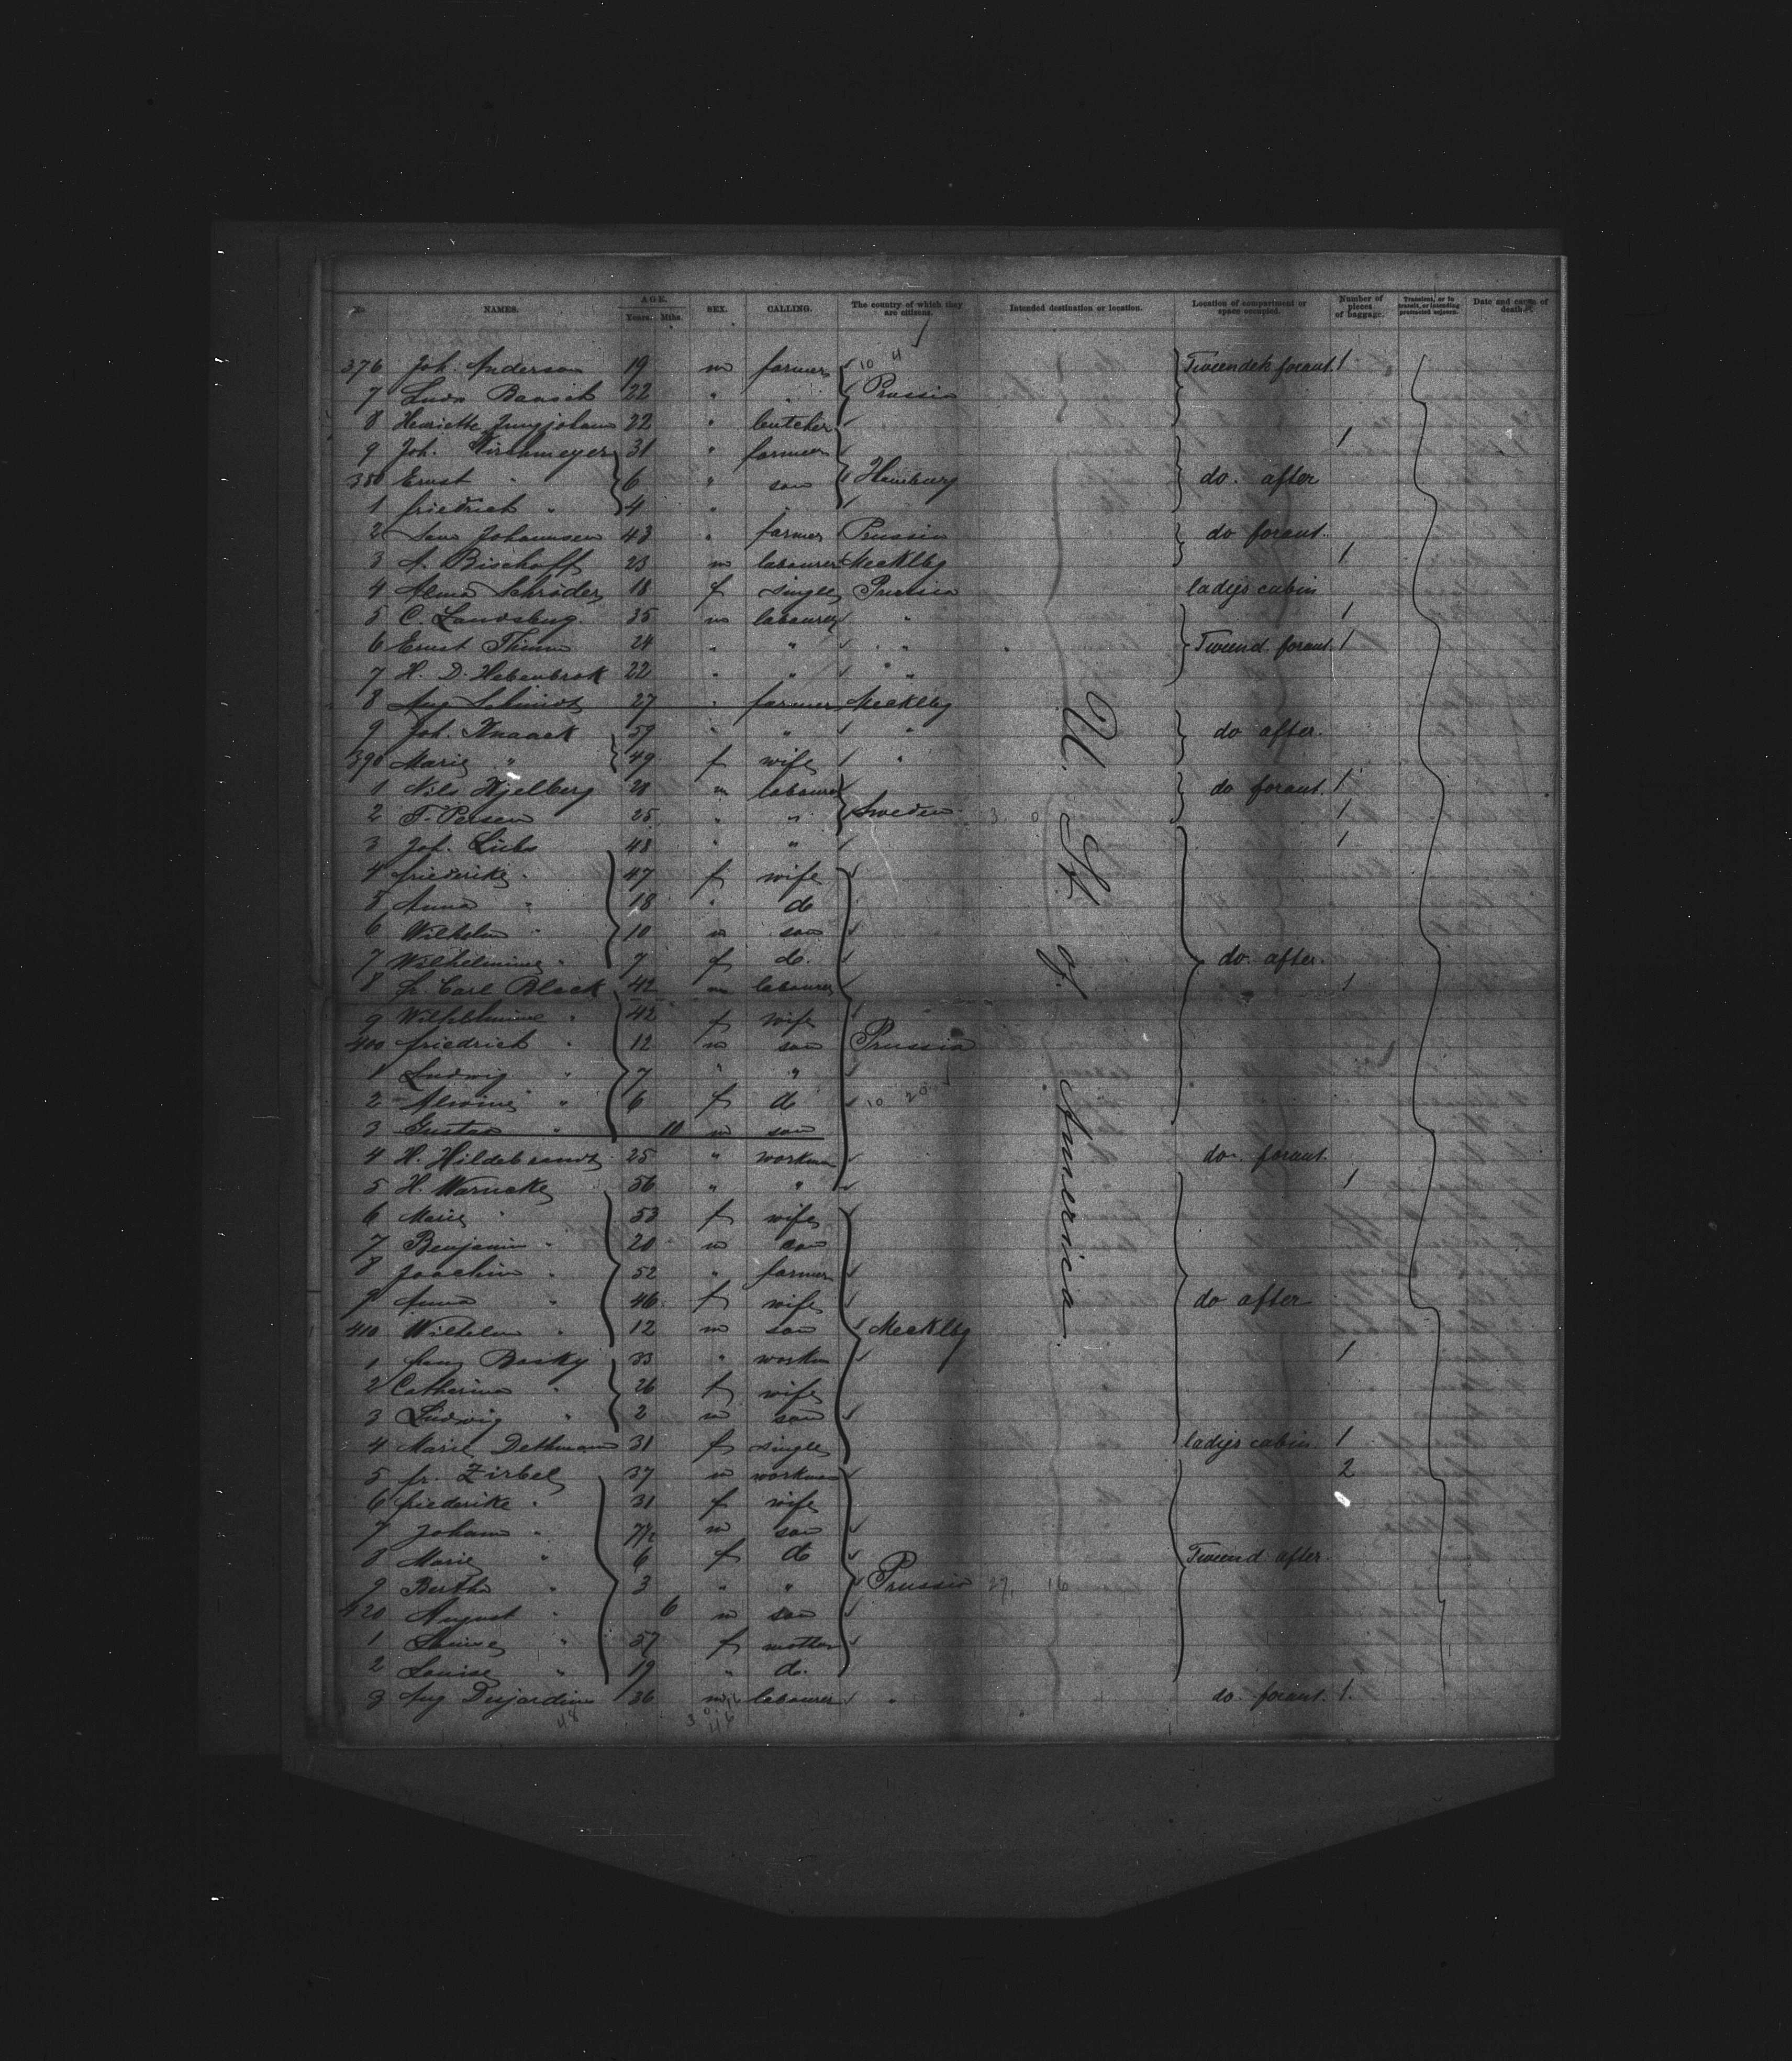 No. NAMES. AGE. Years. Mths. SEX. CALLING. The country of which they are citizens. Intended destination or location. Location of compartment or space occupied. Number of pieces of baggage. Transient, or in transit, or intending protracted sojourn. Date and cause of death.
376 Joh. Anderson 19 m farmer Tweendek foraut. 1
7 22 " " Prussia
8 Henriette Jungjohann 22 " butcher
9 Joh. Kirchmeyer 31 " farmer 1
380 Ernst " 6 " son Hamburg do. after
1 friedrich " 4 "
2 Johannsen 43 " farmer Prussia do foraut.
3 A. Bischoff 23 m labourer Mecklbg 1
4 Alma Schröder 18 f single Prussia ladys cabin
5 C. Landsberg. 35 m labourer " 1
6 Ernst Thimm 24 " " " Tweend foraut. 1
7 H. D. Habenbrok 22 " " "
8 Aug Schmidt 27 " farmer Mecklbg
9 Joh. Knaack 59 " " " do after.
390 Marie " 49 f wife "
1 Nils Hjelberg 28 m labourer do foraut. 1
2 F. Persen 25 " " Sweden 1
3 Joh. Lübs 48 " " 1
4 friederike " 47 f wife
5 Anna " 18 " do
6 Wilhelm " 10 m son
7 Wilhelmine " 7 f do. do. after.
8 fr Carl Block 42 m labourer 1
9 Wilhelmine " 42 f wife
400 friedrich " 12 m son Prussia
1 Ludwig " 7 " "
2 Alwine " 6 f do 10 20
3 Gustav " 10 m son
4 H. Hildebrandt 25 " workman do. foraut.
5 H. Warncke 56 " " 1
6 Marie " 53 f wife
7 Benjamin " 20 m son
8 Joachim " 52 " farmer
9 Anna " 46 f wife do after
410 Wilhelm " 12 m son Mecklbg
1 33 " workm 1
2 Catherina " 26 f wife
3 Ludwig " 2 m son
4 Marie Dethmann 31 f single ladys cabin. 1
5 fr. Zirbel 37 m workman 2
6 friederike " 31 f wife
7 Johann " 7½ m son
8 Marie " 6 f do Tweend after.
9 Bertha " 3 " " Prussia 27, 16
420 August " 6 m son
1 " 57 f mother
2 Louise " 19 " do.
3 Aug Desjardin 36 m labourer " do. foraut. 1.
48
U. St. of America